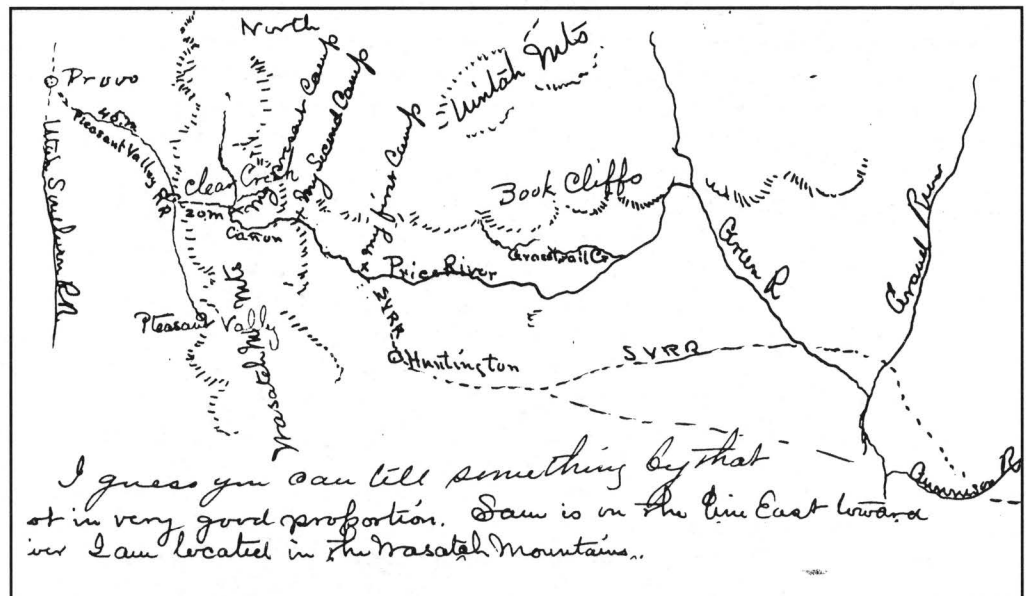 North
Uintah Mts
Provo
45 m
Pleasant Valley RR
Utah Southern RR
Clear Creek
20 m
Cañon
My Present Camp
My Second Camp
My first Camp
Book Cliffs
Grasstrail Cr
Price River
Green R
Grand River
SVRR
Huntington
SVRR
Pleasant Valley
Wasatch Mts
E
Gunnison R
I guess you can tell something by that
ot in very good proportion. Sam is on the line East toward
iver I am located in the Wasatch Mountains.